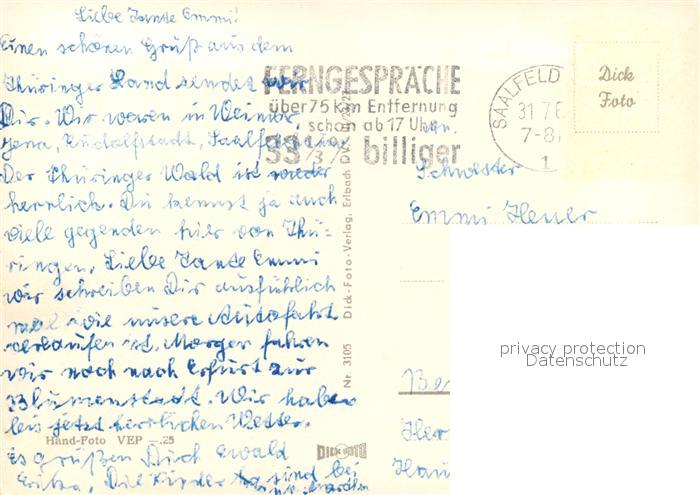 Liebe Tante Emmi!
Einen schönen Gruß aus dem
Thüringer Land sendet wir
Dir. Wir waren in Weimar,
Jena, Rudolfstadt, Saalfeld
Der Thüringer Wald ist wieder
herrlich. Du kennst ja auch
viele gegenden hier von Thü=
ringen. Liebe Tante Emmi
wir schreiben Dir ausführlich
mal wie unsere Autofahrt
verlaufen ist. Morgen fahren
wir noch nach Erfurt zur
Blumenstadt. Wir haben
bis jetzt herrliches Wetter.
Es grüßen Dich Ewald
Erika, Die Kinder sind bei
FERNGESPRÄCHE
über 75 km Entfernung
schon ab 17 Uhr
33 1/3 % billiger
SAALFELD
31.7.6
7-8
1
Dick
Foto
Schwester
Emmi Heuer
privacy protection
Datenschutz
Ber
Her
Hau
Nr. 3105 Dick-Foto-Verlag, Erlbach DV
Hand-Foto VEP -.25
DICK FOTO